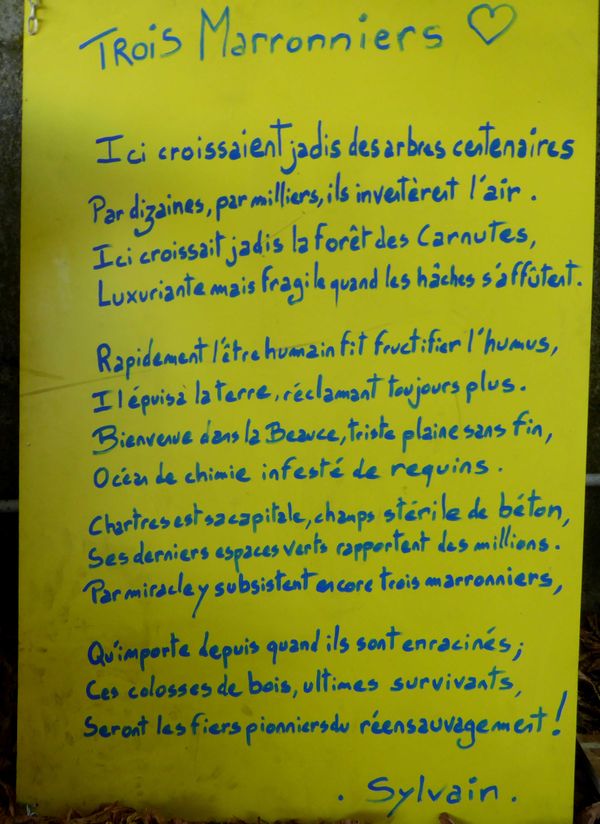 Trois Marronniers ♡
Ici croissaient jadis des arbres centenaires
Par dizaines, par milliers, ils inventèrent l'air.
Ici croissait jadis la forêt des Carnutes,
Luxuriante mais fragile quand les hâches s'affûtent.
Rapidement l'être humain fit fructifier l'humus,
Il épuisa la terre, réclamant toujours plus.
Bienvenue dans la Beauce, triste plaine sans fin,
Océan de chimie infesté de requins.
Chartres est sa capitale, champs stérile de béton,
Ses derniers espaces verts rapportent des millions.
Par miracle y subsistent encore trois marronniers,
Qu'importe depuis quand ils sont enracinés;
Ces colosses de bois, ultimes survivants,
Seront les fiers pionniers du réensauvagement!
. Sylvain .